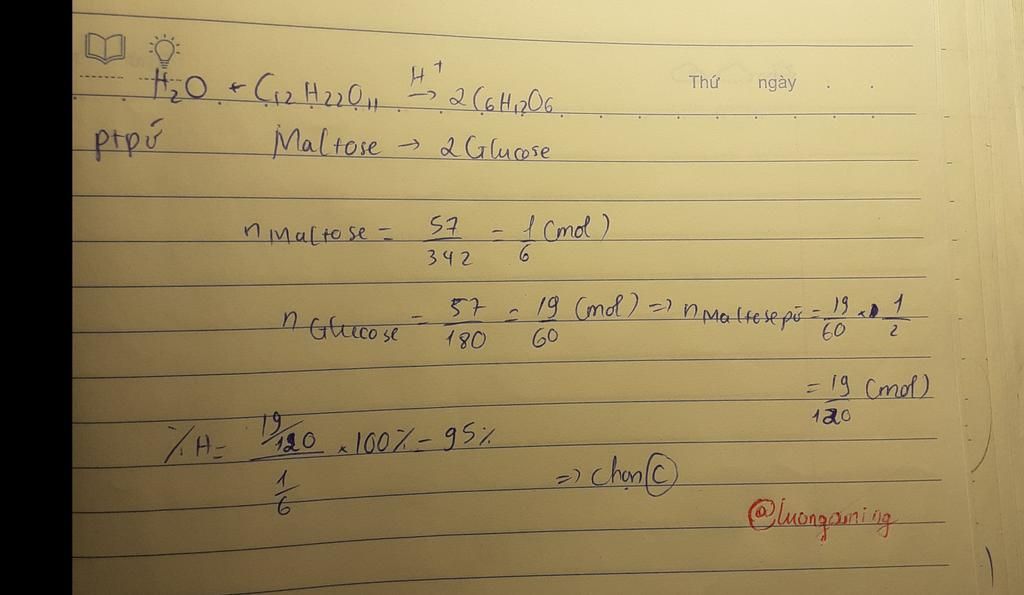 Thứ ngày . .
H2O + C12H22O11 H+→ 2C6H12O6
ptpứ Maltose → 2Glucose
nMaltose = 57/342 = 1/6 (mol)
nGlucose = 57/180 = 19/60 (mol) => nMaltose pứ = 19/60 × 1/2
= 19/120 (mol)
%H = (19/120)/(1/6) × 100% = 95%
=> chọn C
@luongaming